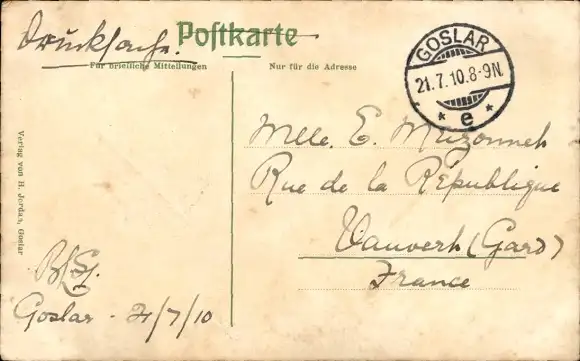 Drucksache.
Postkarte
Für briefliche Mitteilungen
Nur für die Adresse
GOSLAR
21.7.10.8-9N.
* e *
Mlle. E.
Rue de la République
Vauvert (Gard)
France
Goslar - 21/7/10
Verlag von H. Jordan, Goslar